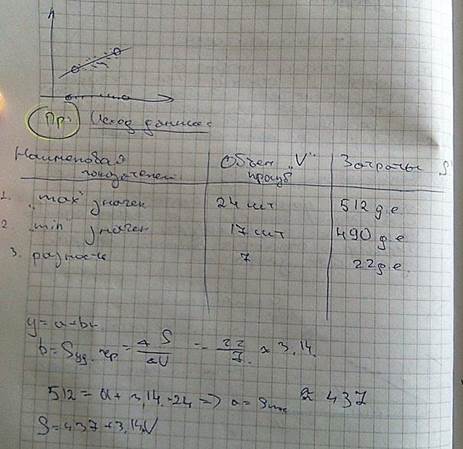 Пр. Исход данные
Наименован показателей Объем "V" продук Затраты S
1. "max" значен 24 шт 512 д.е
2. "min" значен 17 шт 490 д.е
3. разность 7 22 д.е.
y = a + bx
b = Sуд. пер = ΔS/ΔV = 22/7 ≈ 3,14.
512 = a + 3,14 · 24 => a = Sпос ≈ 437
S = 437 + 3,14V